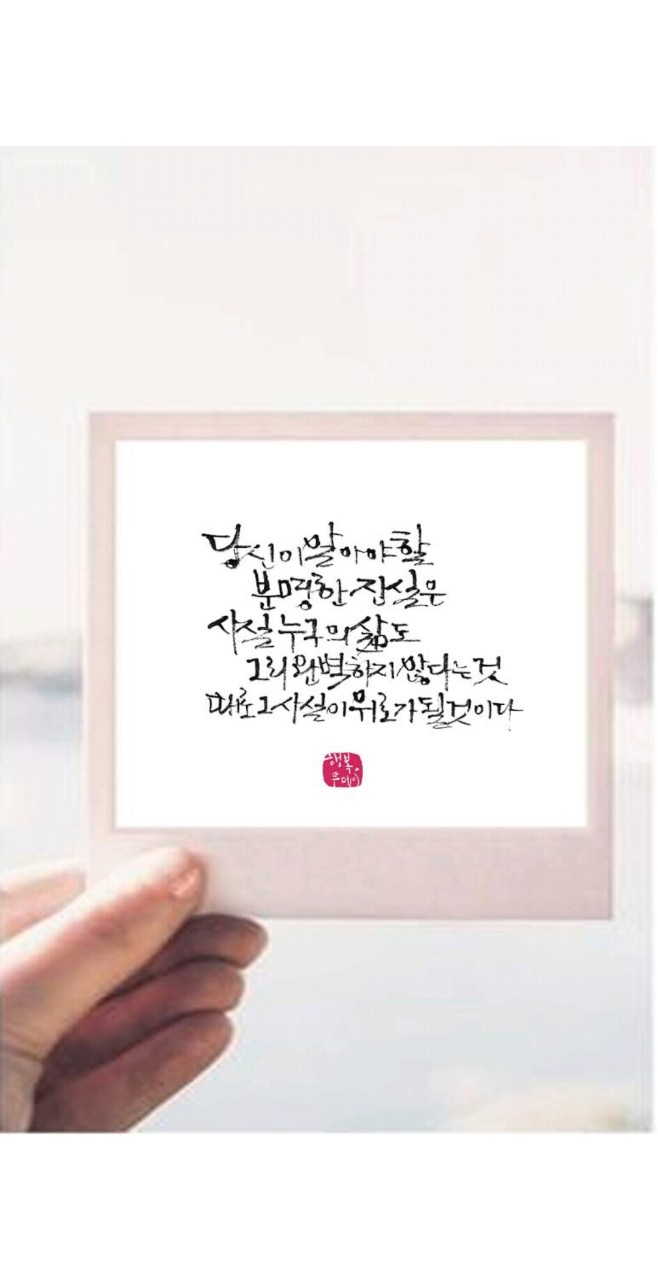 당신이 알아야 할
분명한 진실은
사실 누구의 삶도
그리 완벽하지 않다는 것
때로 그 사실이 위로가 될 것이다
행복